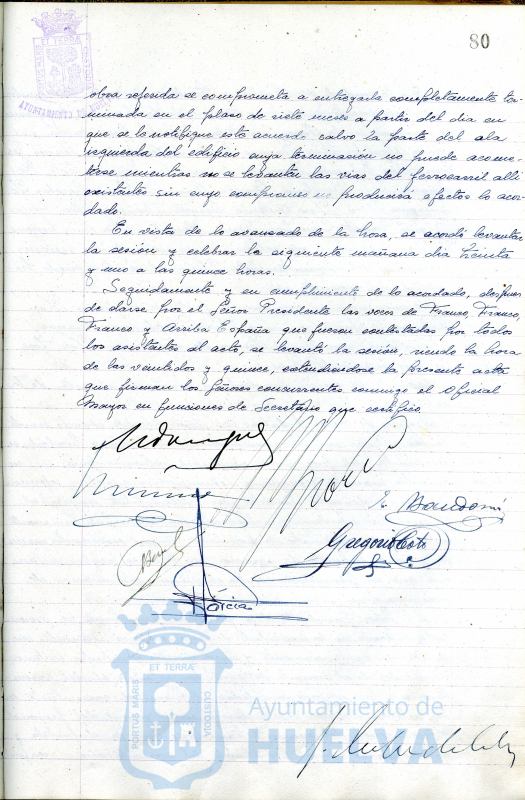 80
ET TERRA
AYUNTAMIENTO DE
obra referida se comprometa a entregarla completamente ter-
minada en el plazo de siete meses a partir del dia en
que se le notifique este acuerdo salvo la parte del ala
izquierda del edificio cuya terminación no puede acome-
terse mientras no se levanten las vias del ferrocarril alli
existentes sin cuyo compromiso no producirá efectos lo acor-
dado.
En vista de lo avanzado de la hora, se acordó levantar
la sesión y celebrar la siguiente mañana dia treinta
y uno a las quince horas.
Seguidamente y en cumplimiento de lo acordado, despues
de darse por el Señor Presidente las voces de Franco, Franco,
Franco y Arriba España que fueron contestadas por todos
los asistentes al acto, se levantó la sesión, siendo la hora
de las veintidos y quince, extendiéndose la presente acta
que firman los Señores concurrentes conmigo el Oficial
Mayor en funciones de Secretario que certifico.
Gregorio Coto
García
PORTUS MARIS
ET TERRA
CUSTODIA
Ayuntamiento de
HUELVA